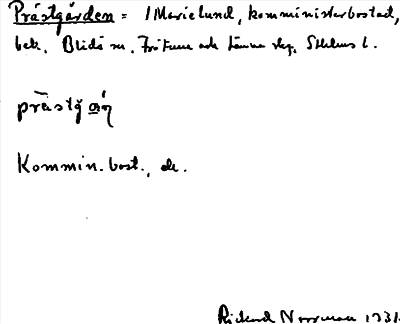 Prästgården = 1 Marielund, komministerbostad,
bek. Blidö sn. Frötuna och Länna skg. Sthlms l.
prästg
Kommin.bost., do.
Rickard Norrman 1931.